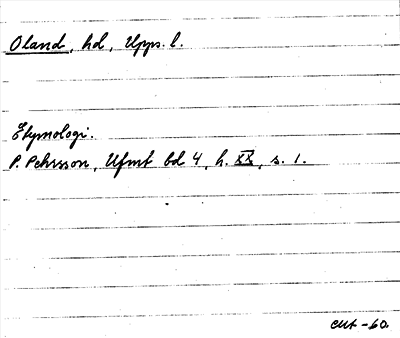 Oland, hd, Upps. l.
Etymologi.
P. Pehrsson, Ufmt bd 4, h. XX, s. 1.
-60.